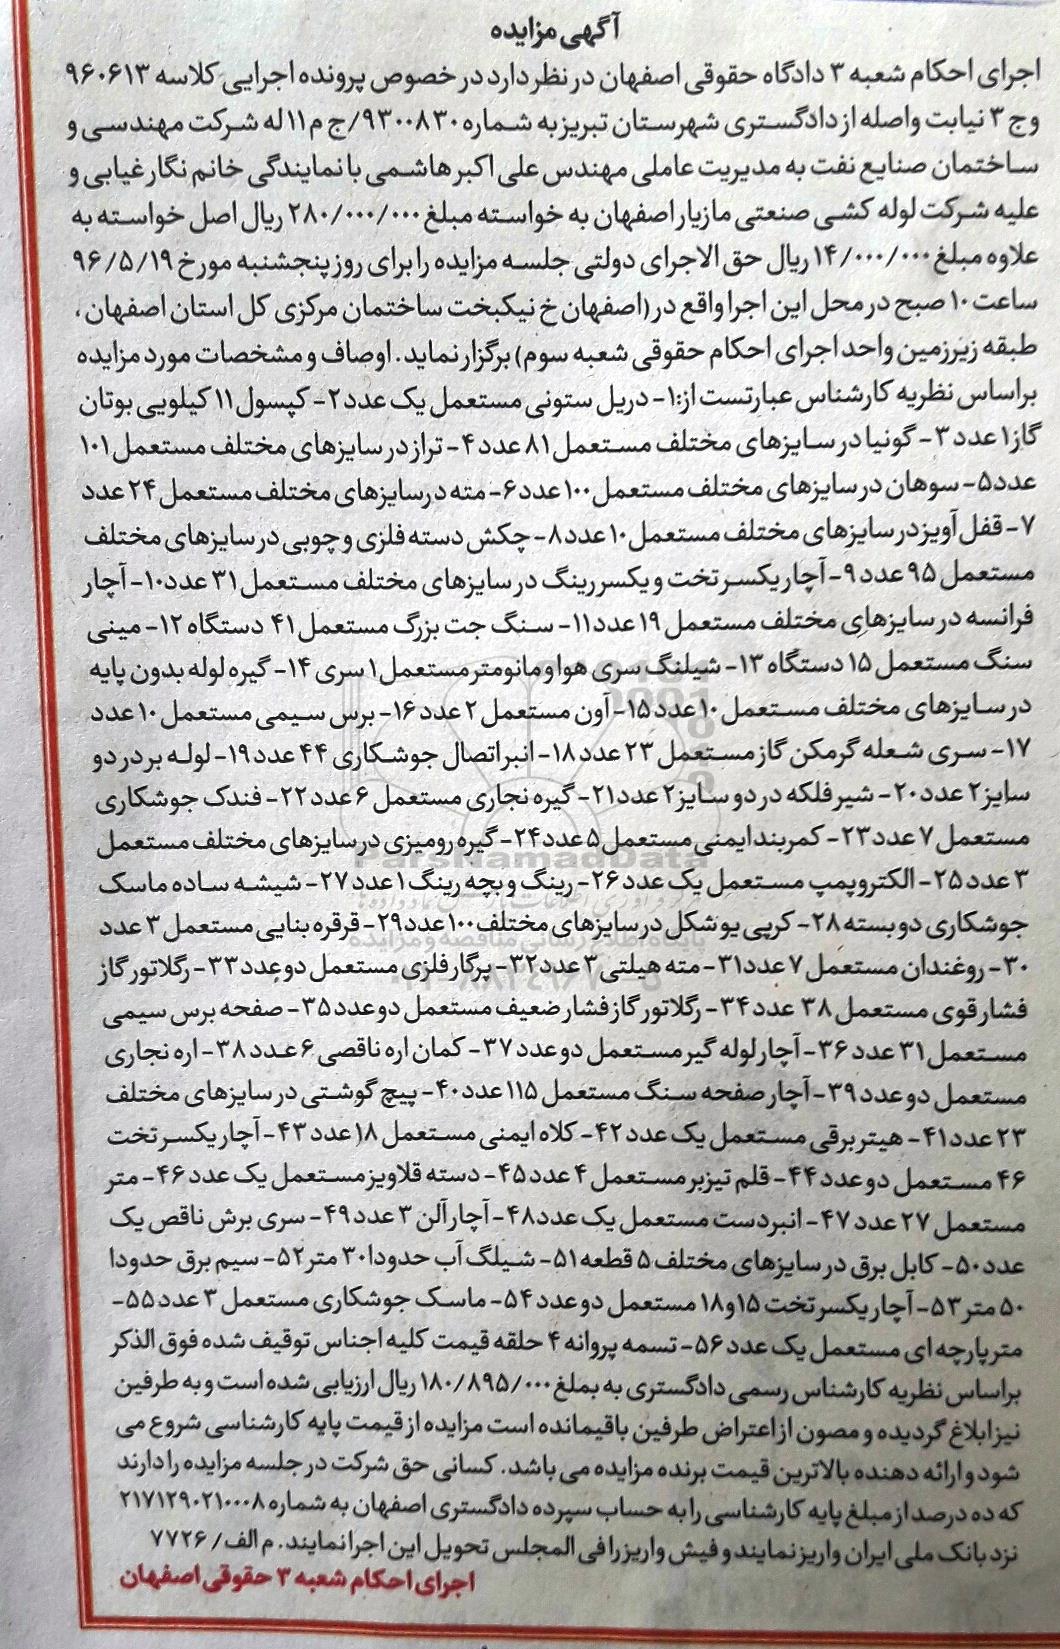 آگهی مزایده
اجرای احکام شعبه ۳ دادگاه حقوقی اصفهان در نظر دارد در خصوص پرونده اجرایی کلاسه ۹۶۰۶۱۳
و ج ۳ نیابت واصله از دادگستری شهرستان تبریز به شماره ۹۳۰۰۸۳۰/ج م ۱۱ له شرکت مهندسی و
ساختمان صنایع نفت به مدیریت عاملی مهندس علی اکبر هاشمی با نمایندگی خانم نگار غیابی و
علیه شرکت لوله کشی صنعتی مازیار اصفهان به خواسته مبلغ ۲۸۰/۰۰۰/۰۰۰ ریال اصل خواسته به
علاوه مبلغ ۱۴/۰۰۰/۰۰۰ ریال حق الاجرای دولتی جلسه مزایده را برای روز پنجشنبه مورخ ۹۶/۵/۱۹
ساعت ۱۰ صبح در محل این اجرا واقع در (اصفهان خ نیکبخت ساختمان مرکزی کل استان اصفهان،
طبقه زیرزمین واحد اجرای احکام حقوقی شعبه سوم) برگزار نماید. اوصاف و مشخصات مورد مزایده
براساس نظریه کارشناس عبارتست از:۱- دریل ستونی مستعمل یک عدد ۲- کپسول ۱۱ کیلویی بوتان
گاز ۱ عدد ۳- گونیا در سایزهای مختلف مستعمل ۸۱ عدد ۴- تراز در سایزهای مختلف مستعمل ۱۰۱
عدد ۵- سوهان در سایزهای مختلف مستعمل ۱۰۰ عدد ۶- مته در سایزهای مختلف مستعمل ۲۴ عدد
۷- قفل آویز در سایزهای مختلف مستعمل ۱۰ عدد ۸- چکش دسته فلزی و چوبی در سایزهای مختلف
مستعمل ۹۵ عدد ۹- آچار یکسر تخت و یکسر رینگ در سایزهای مختلف مستعمل ۳۱ عدد ۱۰- آچار
فرانسه در سایزهای مختلف مستعمل ۱۹ عدد ۱۱- سنگ جت بزرگ مستعمل ۴۱ دستگاه ۱۲- مینی
سنگ مستعمل ۱۵ دستگاه ۱۳- شیلنگ سری هوا و مانومتر مستعمل ۱ سری ۱۴- گیره لوله بدون پایه
در سایزهای مختلف مستعمل ۱۰ عدد ۱۵- آون مستعمل ۲ عدد ۱۶- برس سیمی مستعمل ۱۰ عدد
۱۷- سری شعله گرمکن گاز مستعمل ۲۳ عدد ۱۸- انبر اتصال جوشکاری ۴۴ عدد ۱۹- لوله بر در دو
سایز ۲ عدد ۲۰- شیر فلکه در دو سایز ۲ عدد ۲۱- گیره نجاری مستعمل ۶ عدد ۲۲- فندک جوشکاری
مستعمل ۷ عدد ۲۳- کمربند ایمنی مستعمل ۵ عدد ۲۴- گیره رومیزی در سایزهای مختلف مستعمل
۳ عدد ۲۵- الکتروپمپ مستعمل یک عدد ۲۶- رینگ و بچه رینگ ۱ عدد ۲۷- شیشه ساده ماسک
جوشکاری دو بسته ۲۸- کرپی یو شکل در سایزهای مختلف ۱۰۰ عدد ۲۹- قرقره بنایی مستعمل ۳ عدد
۳۰- روغندان مستعمل ۷ عدد ۳۱- مته هیلتی ۳ عدد ۳۲- پرگار فلزی مستعمل دو عدد ۳۳- رگلاتور گاز
فشار قوی مستعمل ۳۸ عدد ۳۴- رگلاتور گاز فشار ضعیف مستعمل دو عدد ۳۵- صفحه برس سیمی
مستعمل ۳۱ عدد ۳۶- آچار لوله گیر مستعمل دو عدد ۳۷- کمان اره ناقصی ۶ عدد ۳۸- اره نجاری
مستعمل دو عدد ۳۹- آچار صفحه سنگ مستعمل ۱۱۵ عدد ۴۰- پیچ گوشتی در سایزهای مختلف
۲۳ عدد ۴۱- هیتر برقی مستعمل یک عدد ۴۲- کلاه ایمنی مستعمل ۱۸ عدد ۴۳- آچار یکسر تخت
۴۶ مستعمل دو عدد ۴۴- قلم تیزبر مستعمل ۴ عدد ۴۵- دسته قلاویز مستعمل یک عدد ۴۶- متر
مستعمل ۲۷ عدد ۴۷- انبردست مستعمل یک عدد ۴۸- آچار آلن ۳ عدد ۴۹- سری برش ناقص یک
عدد ۵۰- کابل برق در سایزهای مختلف ۵ قطعه ۵۱- شیلگ آب حدودا ۳۰ متر ۵۲- سیم برق حدودا
۵۰ متر ۵۳- آچار یکسر تخت ۱۵ و ۱۸ مستعمل دو عدد ۵۴- ماسک جوشکاری مستعمل ۳ عدد ۵۵-
متر پارچه ای مستعمل یک عدد ۵۶- تسمه پروانه ۴ حلقه قیمت کلیه اجناس توقیف شده فوق الذکر
براساس نظریه کارشناس رسمی دادگستری به بملغ ۱۸۰/۸۹۵/۰۰۰ ریال ارزیابی شده است و به طرفین
نیز ابلاغ گردیده و مصون از اعتراض طرفین باقیمانده است مزایده از قیمت پایه کارشناسی شروع می
شود و ارائه دهنده بالاترین قیمت برنده مزایده می باشد. کسانی حق شرکت در جلسه مزایده را دارند
که ده درصد از مبلغ پایه کارشناسی را به حساب سپرده دادگستری اصفهان به شماره ۲۱۷۱۲۹۰۲۱۰۰۰۸
نزد بانک ملی ایران واریز نمایند و فیش واریز را فی المجلس تحویل این اجرا نمایند. م الف/ ۷۷۲۶
اجرای احکام شعبه ۳ حقوقی اصفهان
ParsNamadData
پایگاه اطلاع رسانی مناقصه و مزایده